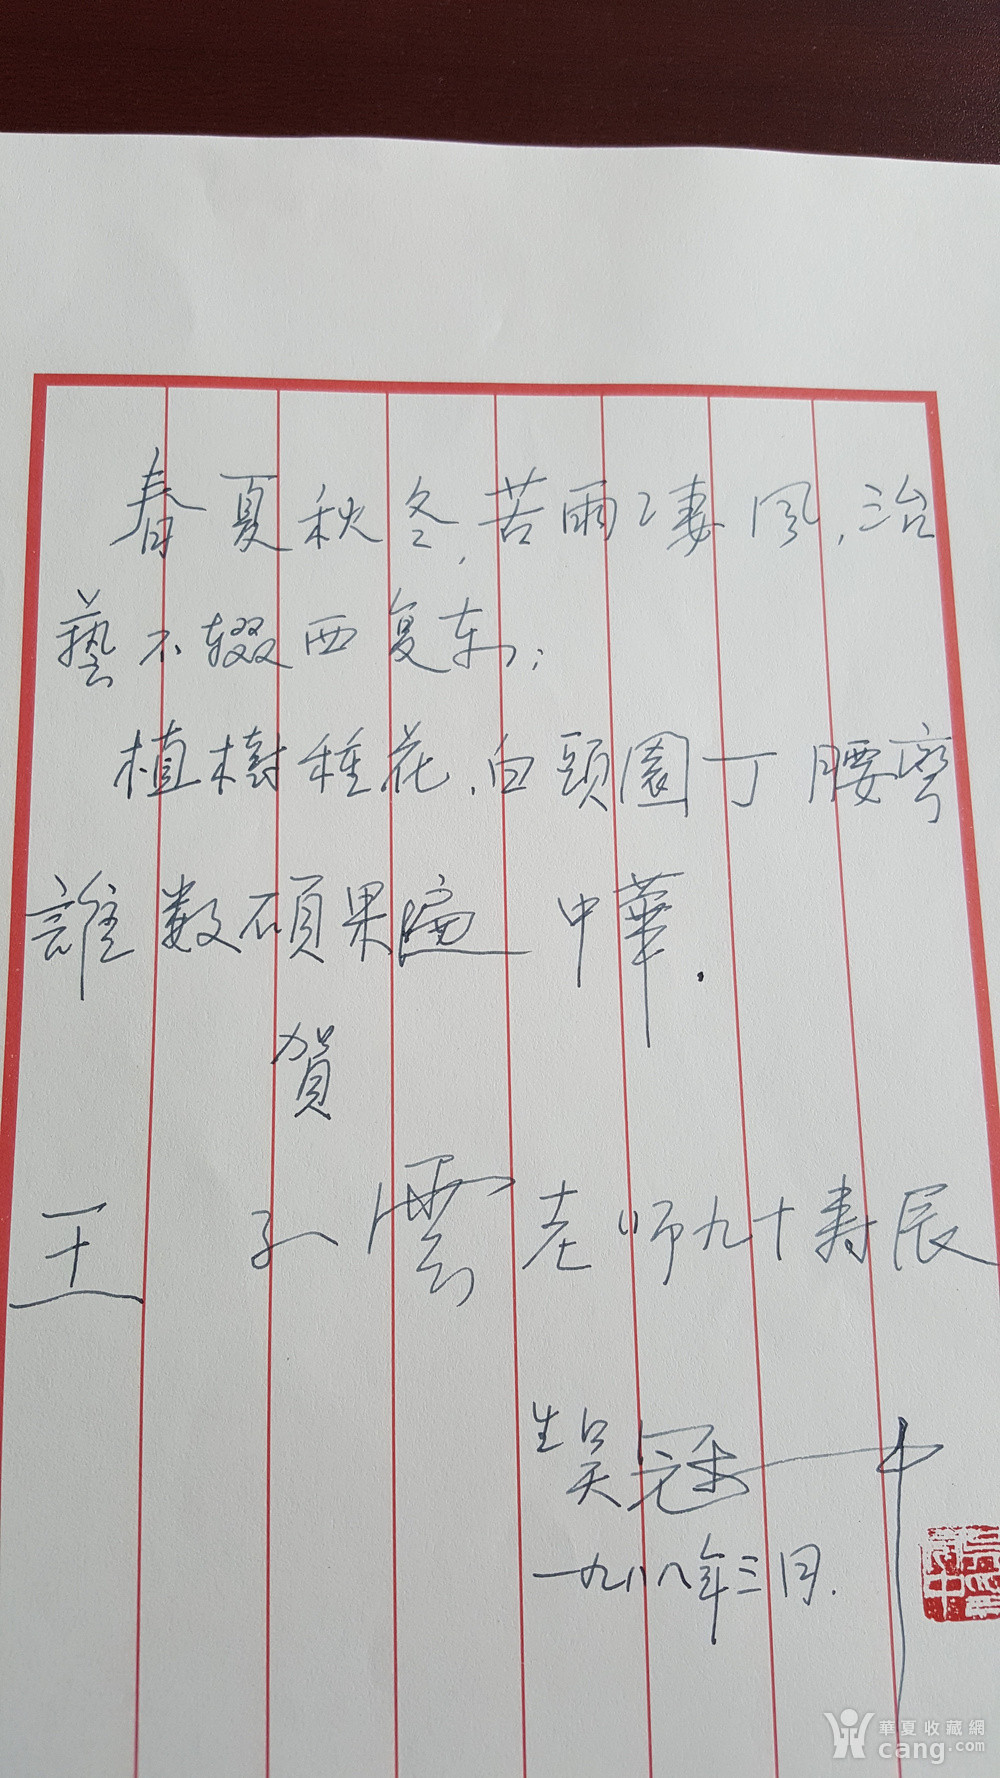 春夏秋冬,苦雨淒風,治
藝不辍西复东;
植樹種花,白頭園丁腰弯
誰数碩果遍中華.
賀
王子雲老师九十寿辰
生吴冠中
一九八八年三月.
華夏收藏網
cang.com